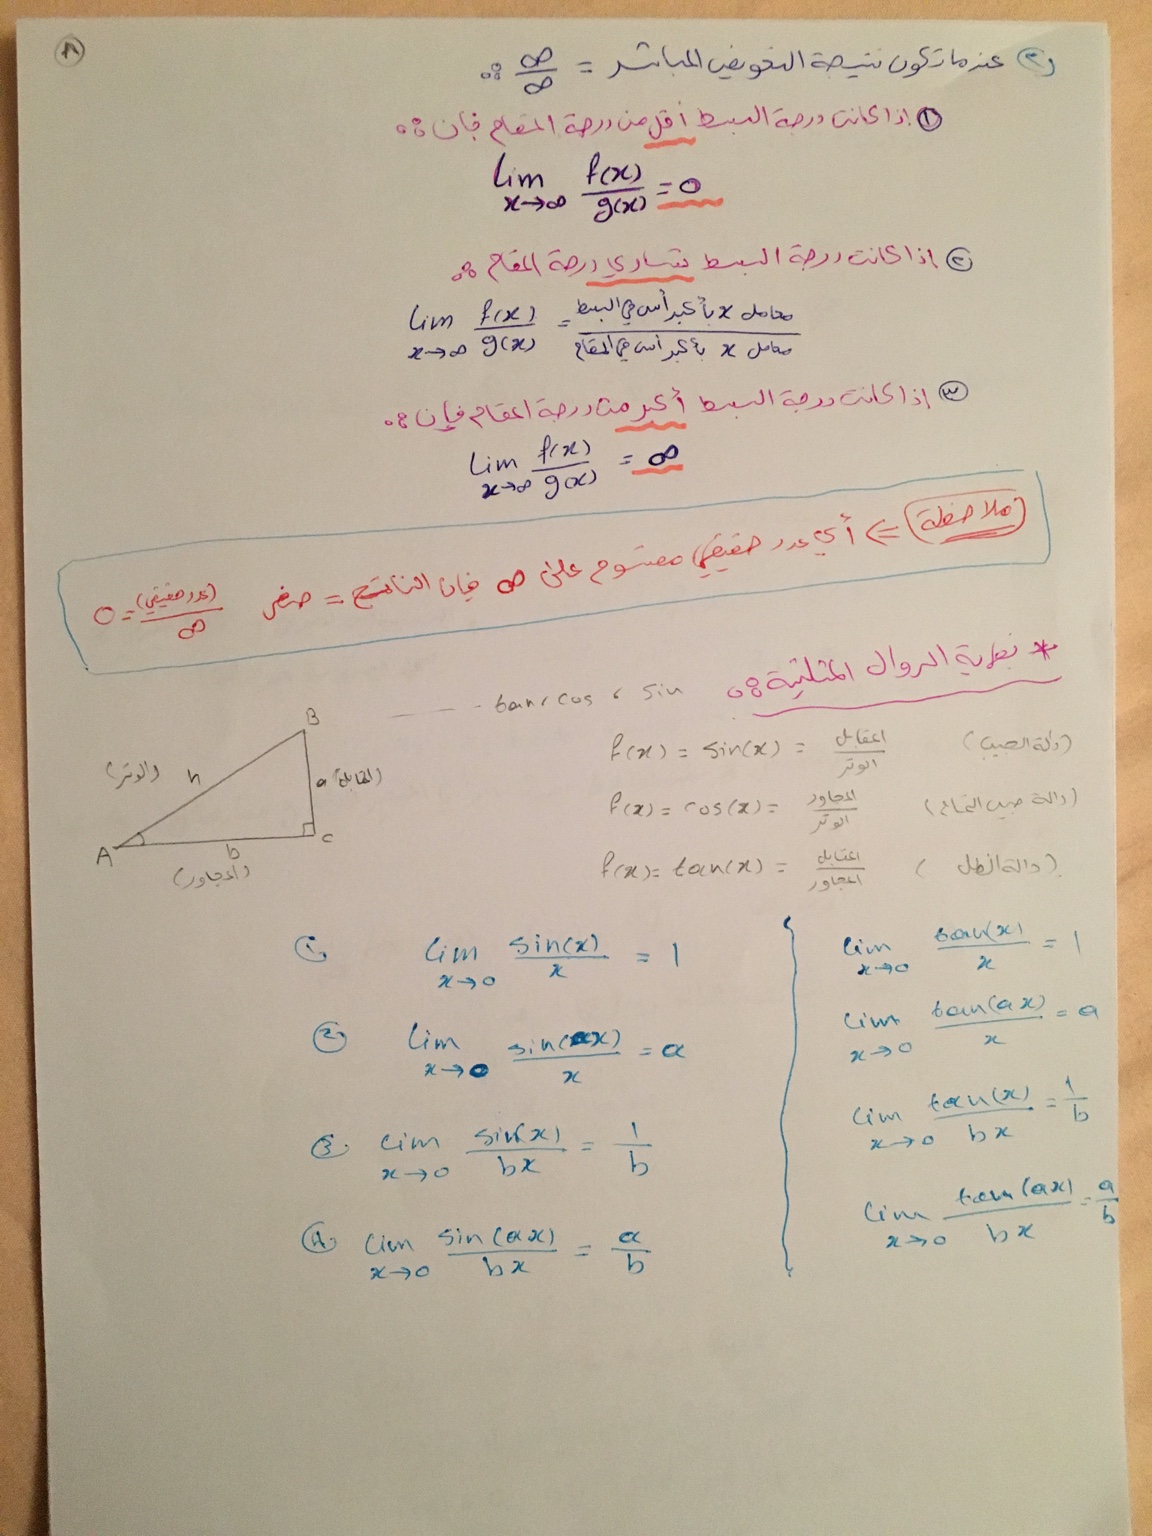 ٨
٣) عندما تكون نتيجة التعويض المباشر = ∞/∞ :
① إذا كانت درجة البسط أقل من درجة المقام فإن :
lim x→∞ f(x)/g(x) = 0
② إذا كانت درجة البسط تساوي درجة المقام :
lim x→∞ f(x)/g(x) = معامل x بأكبر أس في البسط / معامل x بأكبر أس في المقام
③ إذا كانت درجة البسط أكبر من درجة المقام فإن :
lim x→∞ f(x)/g(x) = ∞
(ملاحظة) <= أي عدد حقيقي مقسوم على ∞ فإن الناتج = صفر (عدد حقيقي)/∞ = 0
* نهاية الدوال المثلثية :
sin ، cos ، tan - - -
f(x) = sin(x) = المقابل/الوتر (دالة الجيب)
f(x) = cos(x) = المجاور/الوتر (دالة جيب التمام)
f(x) = tan(x) = المقابل/المجاور (دالة الظل)
B
(الوتر) h
a (المقابل)
A
C
b
(المجاور)
① lim x→0 sin(x)/x = 1
② lim x→0 sin(ax)/x = a
③ lim x→0 sin(x)/bx = 1/b
④ lim x→0 sin(ax)/bx = a/b
lim x→0 tan(x)/x = 1
lim x→0 tan(ax)/x = a
lim x→0 tan(x)/bx = 1/b
lim x→0 tan(ax)/bx = a/b